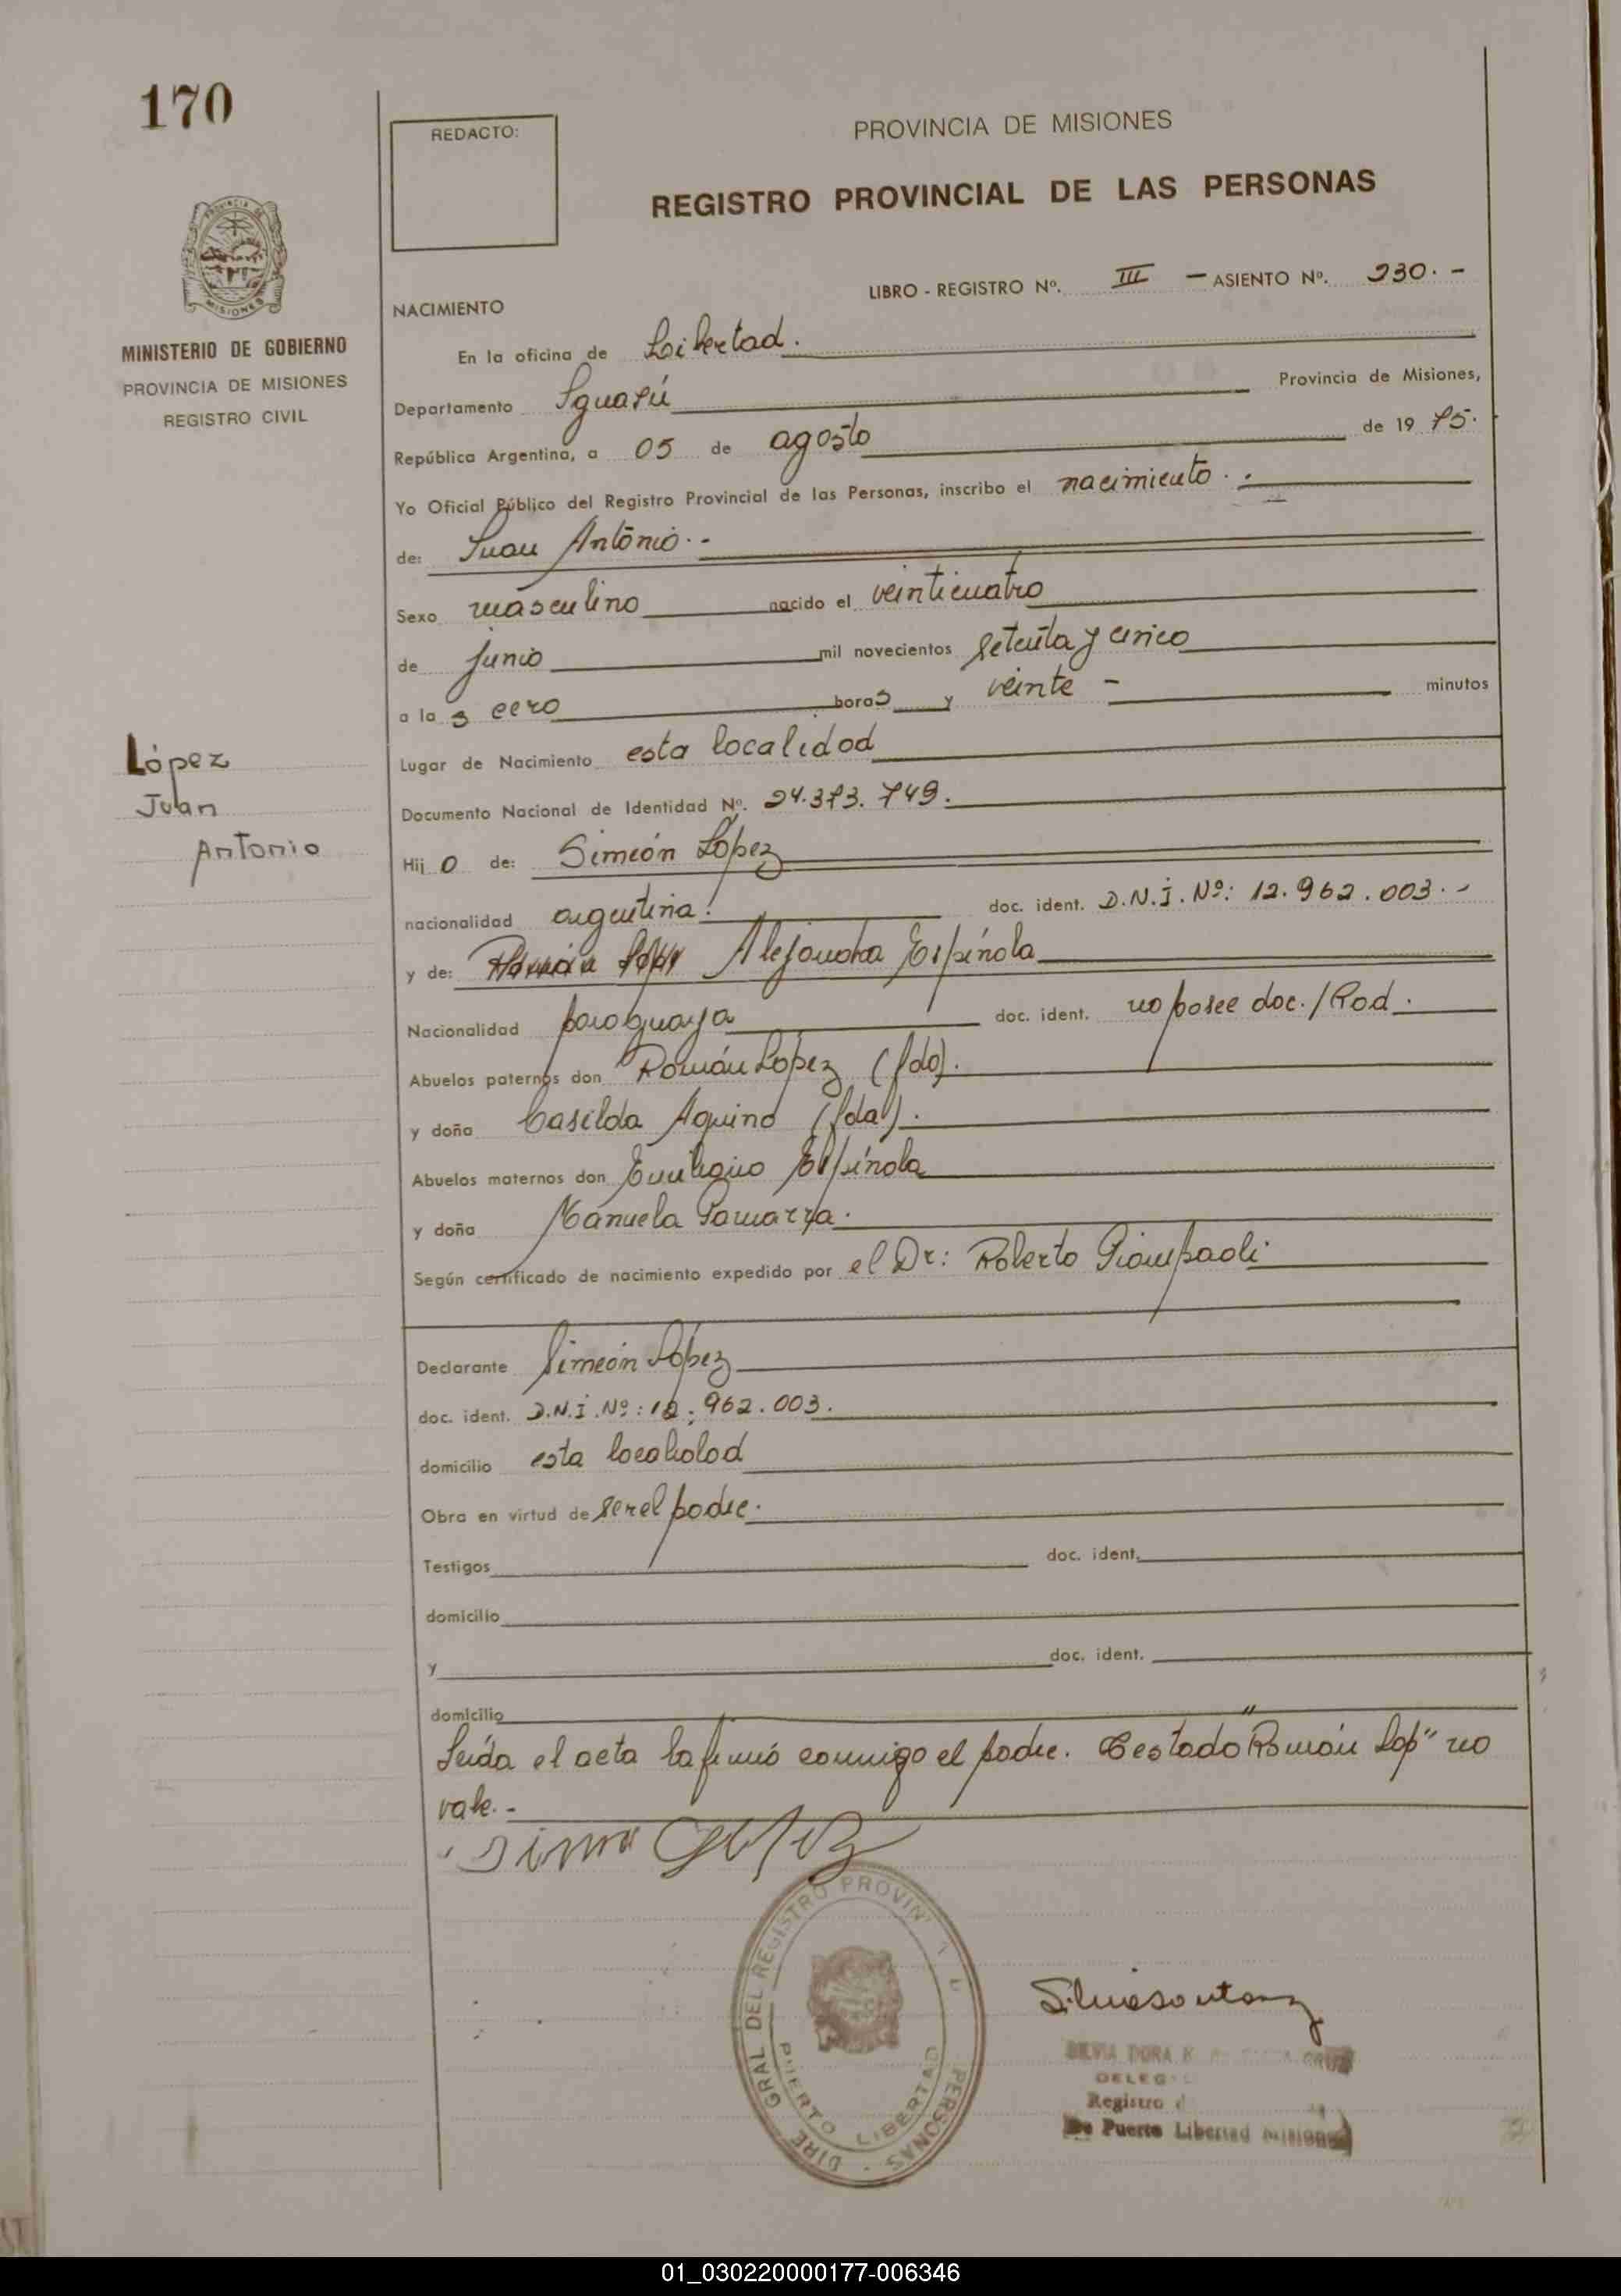 170
REDACTO:
PROVINCIA DE MISIONES
REGISTRO PROVINCIAL DE LAS PERSONAS
PROVINCIA DE
MISIONES
MINISTERIO DE GOBIERNO
PROVINCIA DE MISIONES
REGISTRO CIVIL
LIBRO - REGISTRO Nº. III — ASIENTO Nº. 230.-
NACIMIENTO
En la oficina de Libertad.
Departamento Iguazú Provincia de Misiones,
República Argentina, a 05 de agosto de 19 75.
Yo Oficial Público del Registro Provincial de las Personas, inscribo el nacimiento.
de: Juan Antonio.-
Sexo masculino nacido el veinticuatro
de junio mil novecientos setenta y cinco
a la s cero horas y veinte - minutos
Lugar de Nacimiento esta localidad
Documento Nacional de Identidad Nº. 24.373.749.
Hij o de: Simeón López
nacionalidad argentina. doc. ident. D.N.I. Nº: 12.962.003.-
y de: Alejandra Espínola
Nacionalidad paraguaya doc. ident. no posee doc./Rad.
Abuelos paternos don Román López (fdo).
y doña Casilda Aquino (fda).
Abuelos maternos don Espínola
y doña Manuela Gamarra.
Según certificado de nacimiento expedido por el Dr: Roberto Giampaoli
López
Juan
Antonio
Declarante Simeón López
doc. ident. D.N.I. Nº: 12.962.003.
domicilio esta localidad
Obra en virtud de ser el padre.
Testigos doc. ident.
domicilio
y doc. ident.
domicilio
Leída el acta la firmó conmigo el padre. Testado "Román Lop" no
vale.-
DIRE GRAL DEL REGISTRO PROVIN PERSONAS
PUERTO LIBERTAD
SILVIA DORA
DELEG
Registro
De Puerto Libertad Misiones
01_030220000177-006346